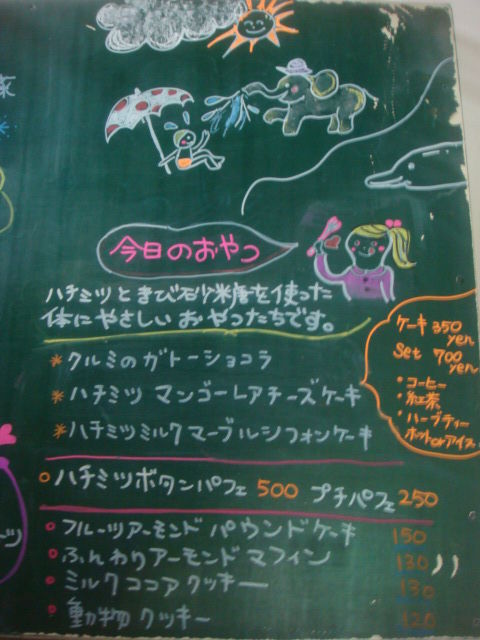 今日のおやつ
ハチミツときび砂糖を使った
体にやさしいおやつたちです。
*クルミのガトーショコラ
*ハチミツ マンゴーレアチーズケーキ
*ハチミツミルクマーブルシフォンケーキ
ケーキ 350
yen
Set 700
yen
・コーヒー
・紅茶
・ハーブティー
ホットorアイス
ハチミツボタンパフェ 500 プチパフェ 250
フルーツアーモンドパウンドケーキ 150
ふんわりアーモンドマフィン 130
ミルクココアクッキー 130
動物クッキー 120